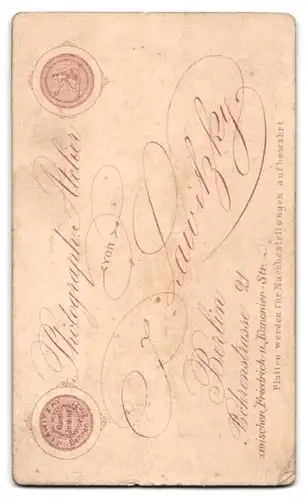 Photograph. Atelier
von
L. Sawitzky
Berlin
Behrenstrasse 21
zwischen Friedrich- u. Kanonier-Str.
Platten werden für Nachbestellungen aufbewahrt